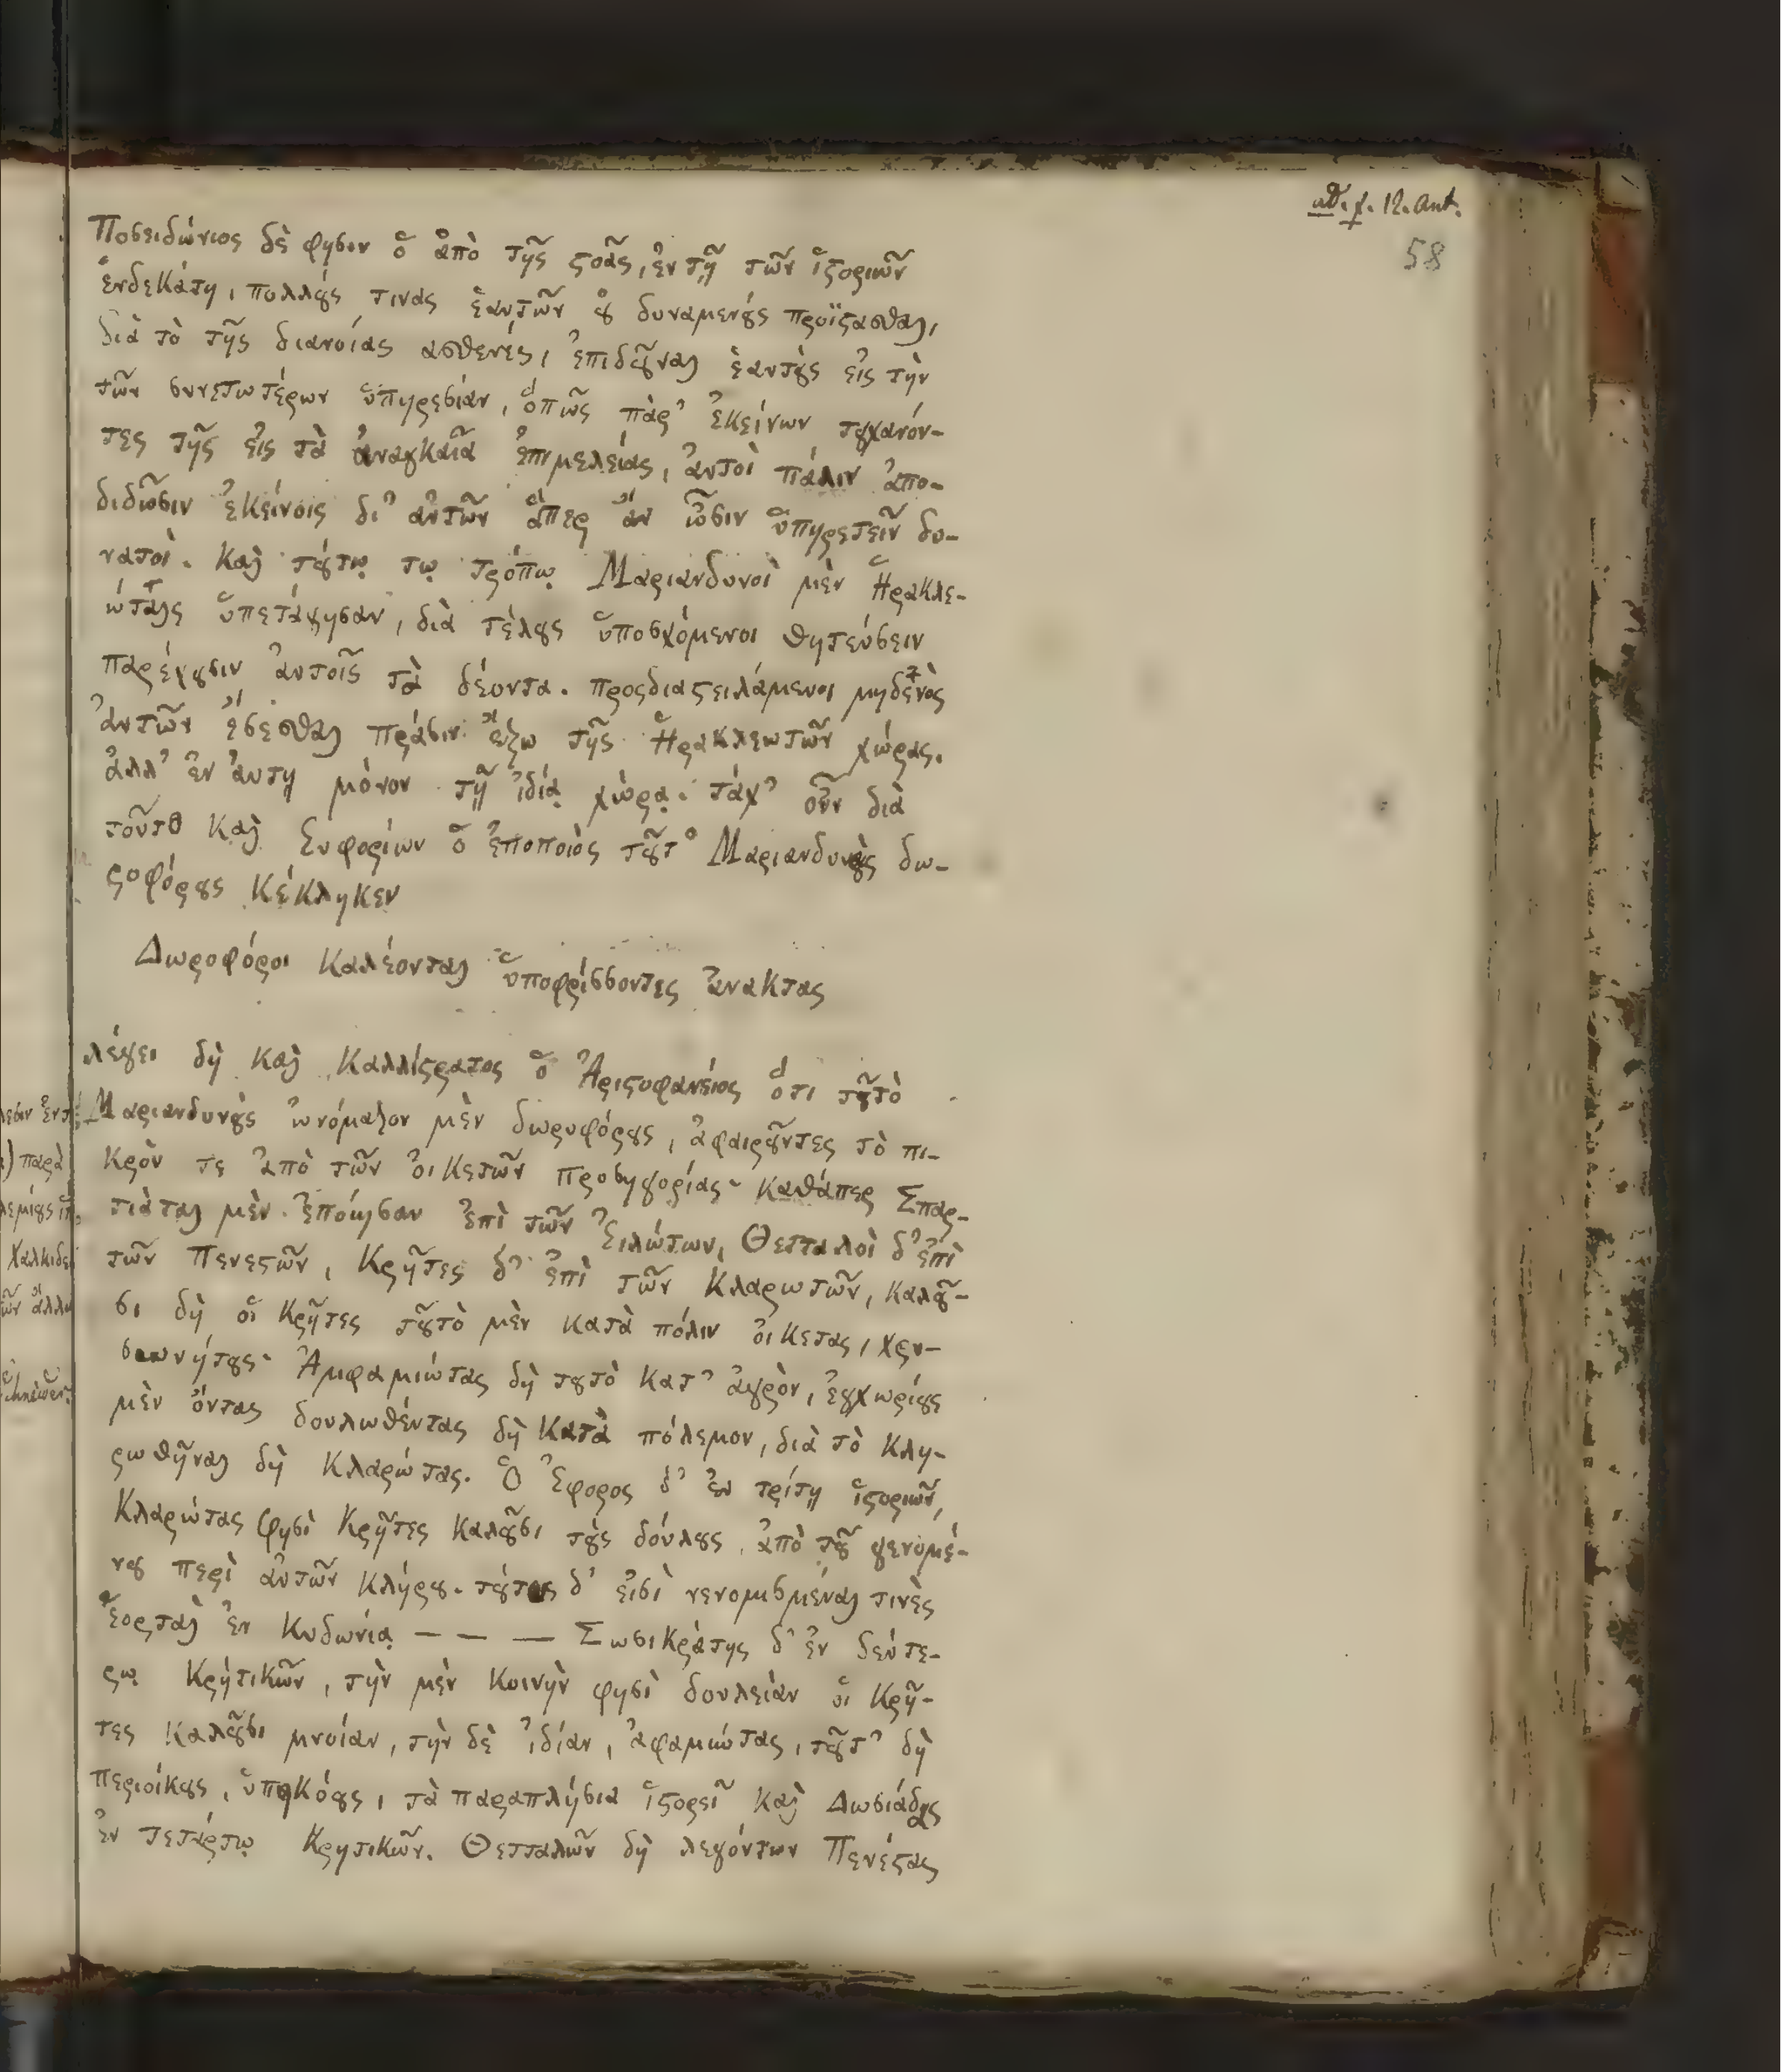 ad. p. 12. Ant.
58
Ποσειδώνιος δὲ φησιν ὁ ἀπὸ τῆς ϛοᾶς, ἐν τῇ τῶν ἱϛοριῶν
ἑνδεκάτη, πολλȣ́ς τινας ἑαυτῶν ȣ̓ δυναμενȣ́ς προΐϛασθαι,
διὰ τὸ τῆς διανοίας ασθενές, ἐπιδȣ͂ναι ἑαυτȣ̀ς εἰς τὴν
τῶν συνετωτέρων ὑπηρεσίαν, ὅπῶς πὰρ' ἐκείνων τυχανόν-
τες τῆς εἰς τὰ ἀναγκαῖα ἐπιμελείας, ἀυτοὶ πάλιν ἀπο-
διδῶσιν ἐκείνοις δι' ἀυτῶν ἅπερ ἂν ὦσιν ὑπηρετεῖν δυ-
νατοὶ. Και τȣ́τῳ τῳ τρόπῳ Μαριανδυνοὶ μὲν Ἡρακλε-
ώταις ὑπετάγησαν, διὰ τέλȣς ὑποσχόμενοι θητεύσειν
παρέχȣσιν ἀυτοῖς τὰ δέοντα. προςδιαϛειλάμενοι μηδενὸς
ἀυτῶν ἔσεσθαι πράσιν ἔξω τῆς Ἡρακλεωτῶν χώρας.
ἀλλ' ἐν ἀυτη μόνον τῇ ἰδίᾳ χώρᾳ. τάχ' οὖν διὰ
τοῦτο Και Ευφορίων ὁ ἐποποιὸς τȣ͂τ' Μαριανδυνȣ̀ς δω-
ροφόρȣς Κέκληκεν
Δωροφόροι Καλέονται ὑποφρίσσοντες ἄνακτας
λέγει δὴ Και Καλλίϛρατος ὁ Ἀριϛοφανέιος ὅτι τȣ͂τὸ
Μαριανδυνȣ̀ς ὠνόμαζον μὲν δωροφόρȣς, ἀφαιρȣ͂ντες τὸ πι-
κρὸν τε ἀπὸ τῶν ὀικετῶν προσηγορίας· καθάπερ Σπαρ-
τιάται μὲν ἐποίησαν ἐπὶ τῶν Ἐιλώτων, Θετταλοὶ δ' ἐπὶ
τῶν Πενεϛῶν, Κρῆτες δ' ἐπὶ τῶν Κλαρωτῶν, Καλȣ͂-
σι δὴ οἱ Κρῆτες τȣ͂τὸ μὲν κατὰ πόλιν ὀικετας, χρυ-
σωνήτȣς· Ἀμφαμιώτας δὴ τȣτὸ Κατ' ἀγρὸν, ἐγχωρίȣς
μὲν ὄντας δουλωθέντας δὴ Κατὰ πόλεμον, διὰ τὸ Κλη-
ρωθῆναι δὴ Κλαρώτας. Ὁ Ἔφορος δ' ἐν τρίτῃ ἱϛοριῶν,
Κλαρώτας φησὶ Κρῆτες Καλȣ͂σι τȣ̀ς δούλȣς, ἀπὸ τȣ͂ γενομέ-
νȣ περὶ ἀυτῶν Κλήρȣ. τȣ́τοις δ' εἰσὶ νενομισμέναι τινὲς
ἑορται ἐν Κυδωνίᾳ — — — Σωσικράτης δ' ἐν δεύτε-
ρῳ Κρήτικῶν, τὴν μὲν Κοινὴν φησὶ δουλείαν ὁι Κρῆ-
τες Καλȣ͂σι μνοίαν, τὴν δὲ ἰδίαν, ἀφαμιώτας, τȣ͂τ' δὴ
περιοίκȣς, ὑπηκόȣς, τὰ παραπλήσια ἱϛορεῖ Και Δωσιάδας
ἐν τετάρτῳ Κρητικῶν. Θετταλῶν δὴ λεγόντων Πενέϛας